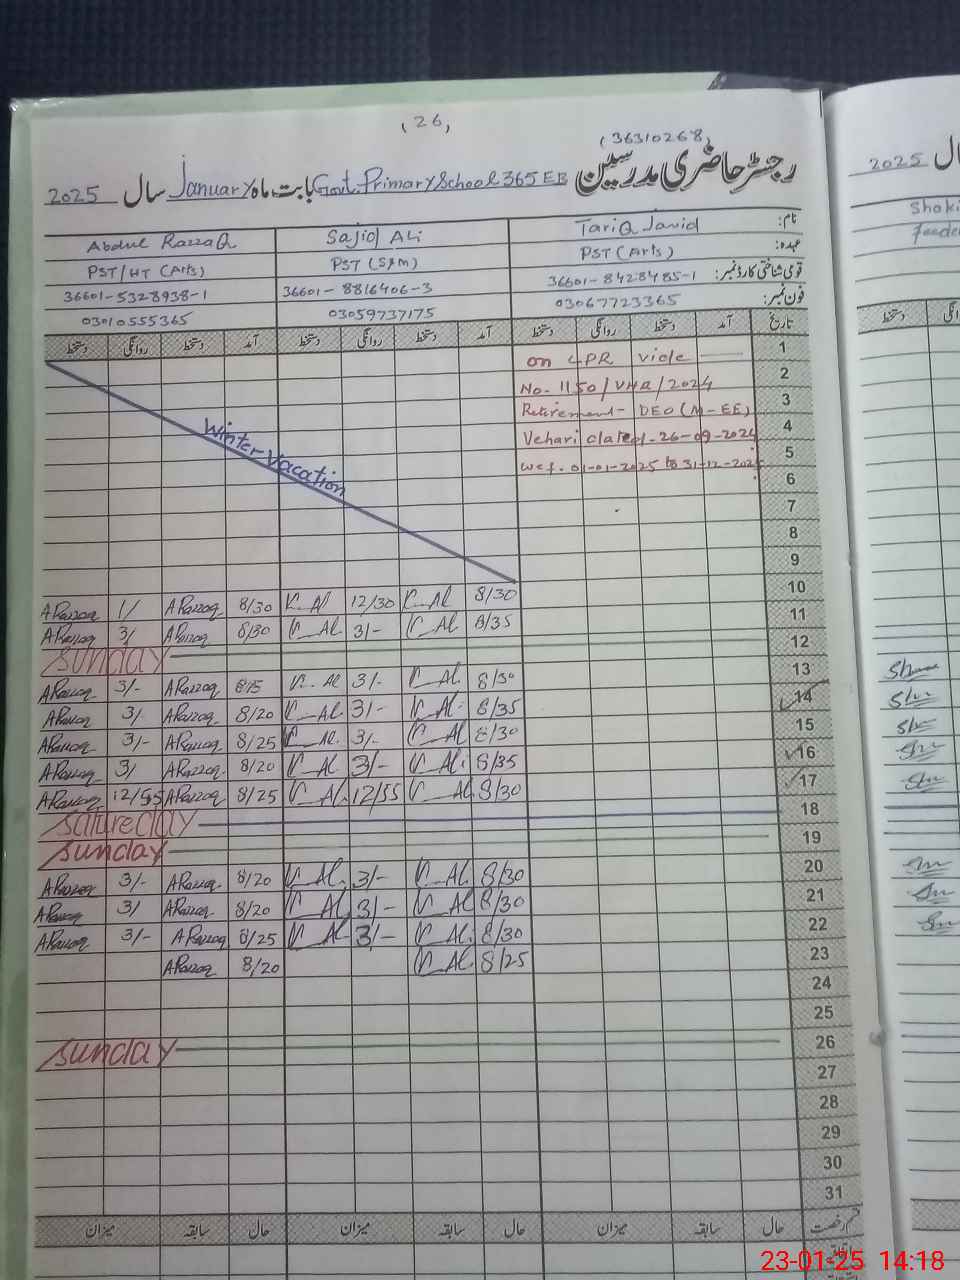 (26)
(36310268)
رجسٹر حاضری مدرسین Govt. Primary School 365 EB بابت ماہ January سال 2025
نام: Tariq Javid Sajid Ali Abdul Razzaq
عہدہ: PST (Arts) PST (S/m) PST/HT (Arts)
قومی شناختی کارڈ نمبر: 36601-8428485-1 36601-8816406-3 36601-5328938-1
فون نمبر: 03067723365 03059737175 03010555365
تاریخ آمد دستخط روانگی دستخط آمد دستخط روانگی دستخط آمد دستخط روانگی دستخط
1 on LPR vide
2 No. 1150/VHR/2024
3 Retirement- DEO (M-EE)
4 Vehari dated. 26-09-2024
5 w.e.f. 01-01-2025 to 31-12-2025
6
7
8
9
Winter Vacation
10 8/30 12/30 8/30 ARazzaq 1/ ARazzaq
11 8/35 3/- 8/30 ARazzaq 3/ ARazzaq
12 Sunday
13 8/30 3/- 8/15 ARazzaq 3/- ARazzaq
14 8/35 3/- 8/20 ARazzaq 3/- ARazzaq
15 8/30 3/- 8/25 ARazzaq 3/- ARazzaq
16 8/35 3/- 8/20 ARazzaq 3/ ARazzaq
17 8/30 12/55 8/25 ARazzaq 12/55 ARazzaq
18 Satureday
19 Sunday
20 8/30 3/- 8/20 ARazzaq 3/- ARazzaq
21 8/30 3/- 8/20 ARazzaq 3/ ARazzaq
22 8/30 3/- 8/25 ARazzaq 3/- ARazzaq
23 8/25 8/20 ARazzaq
24
25
26 Sunday
27
28
29
30
31
قسم رخصت حال سابقہ میزان حال سابقہ میزان حال سابقہ میزان
2025 سال
دستخط
23-01-25 14:18